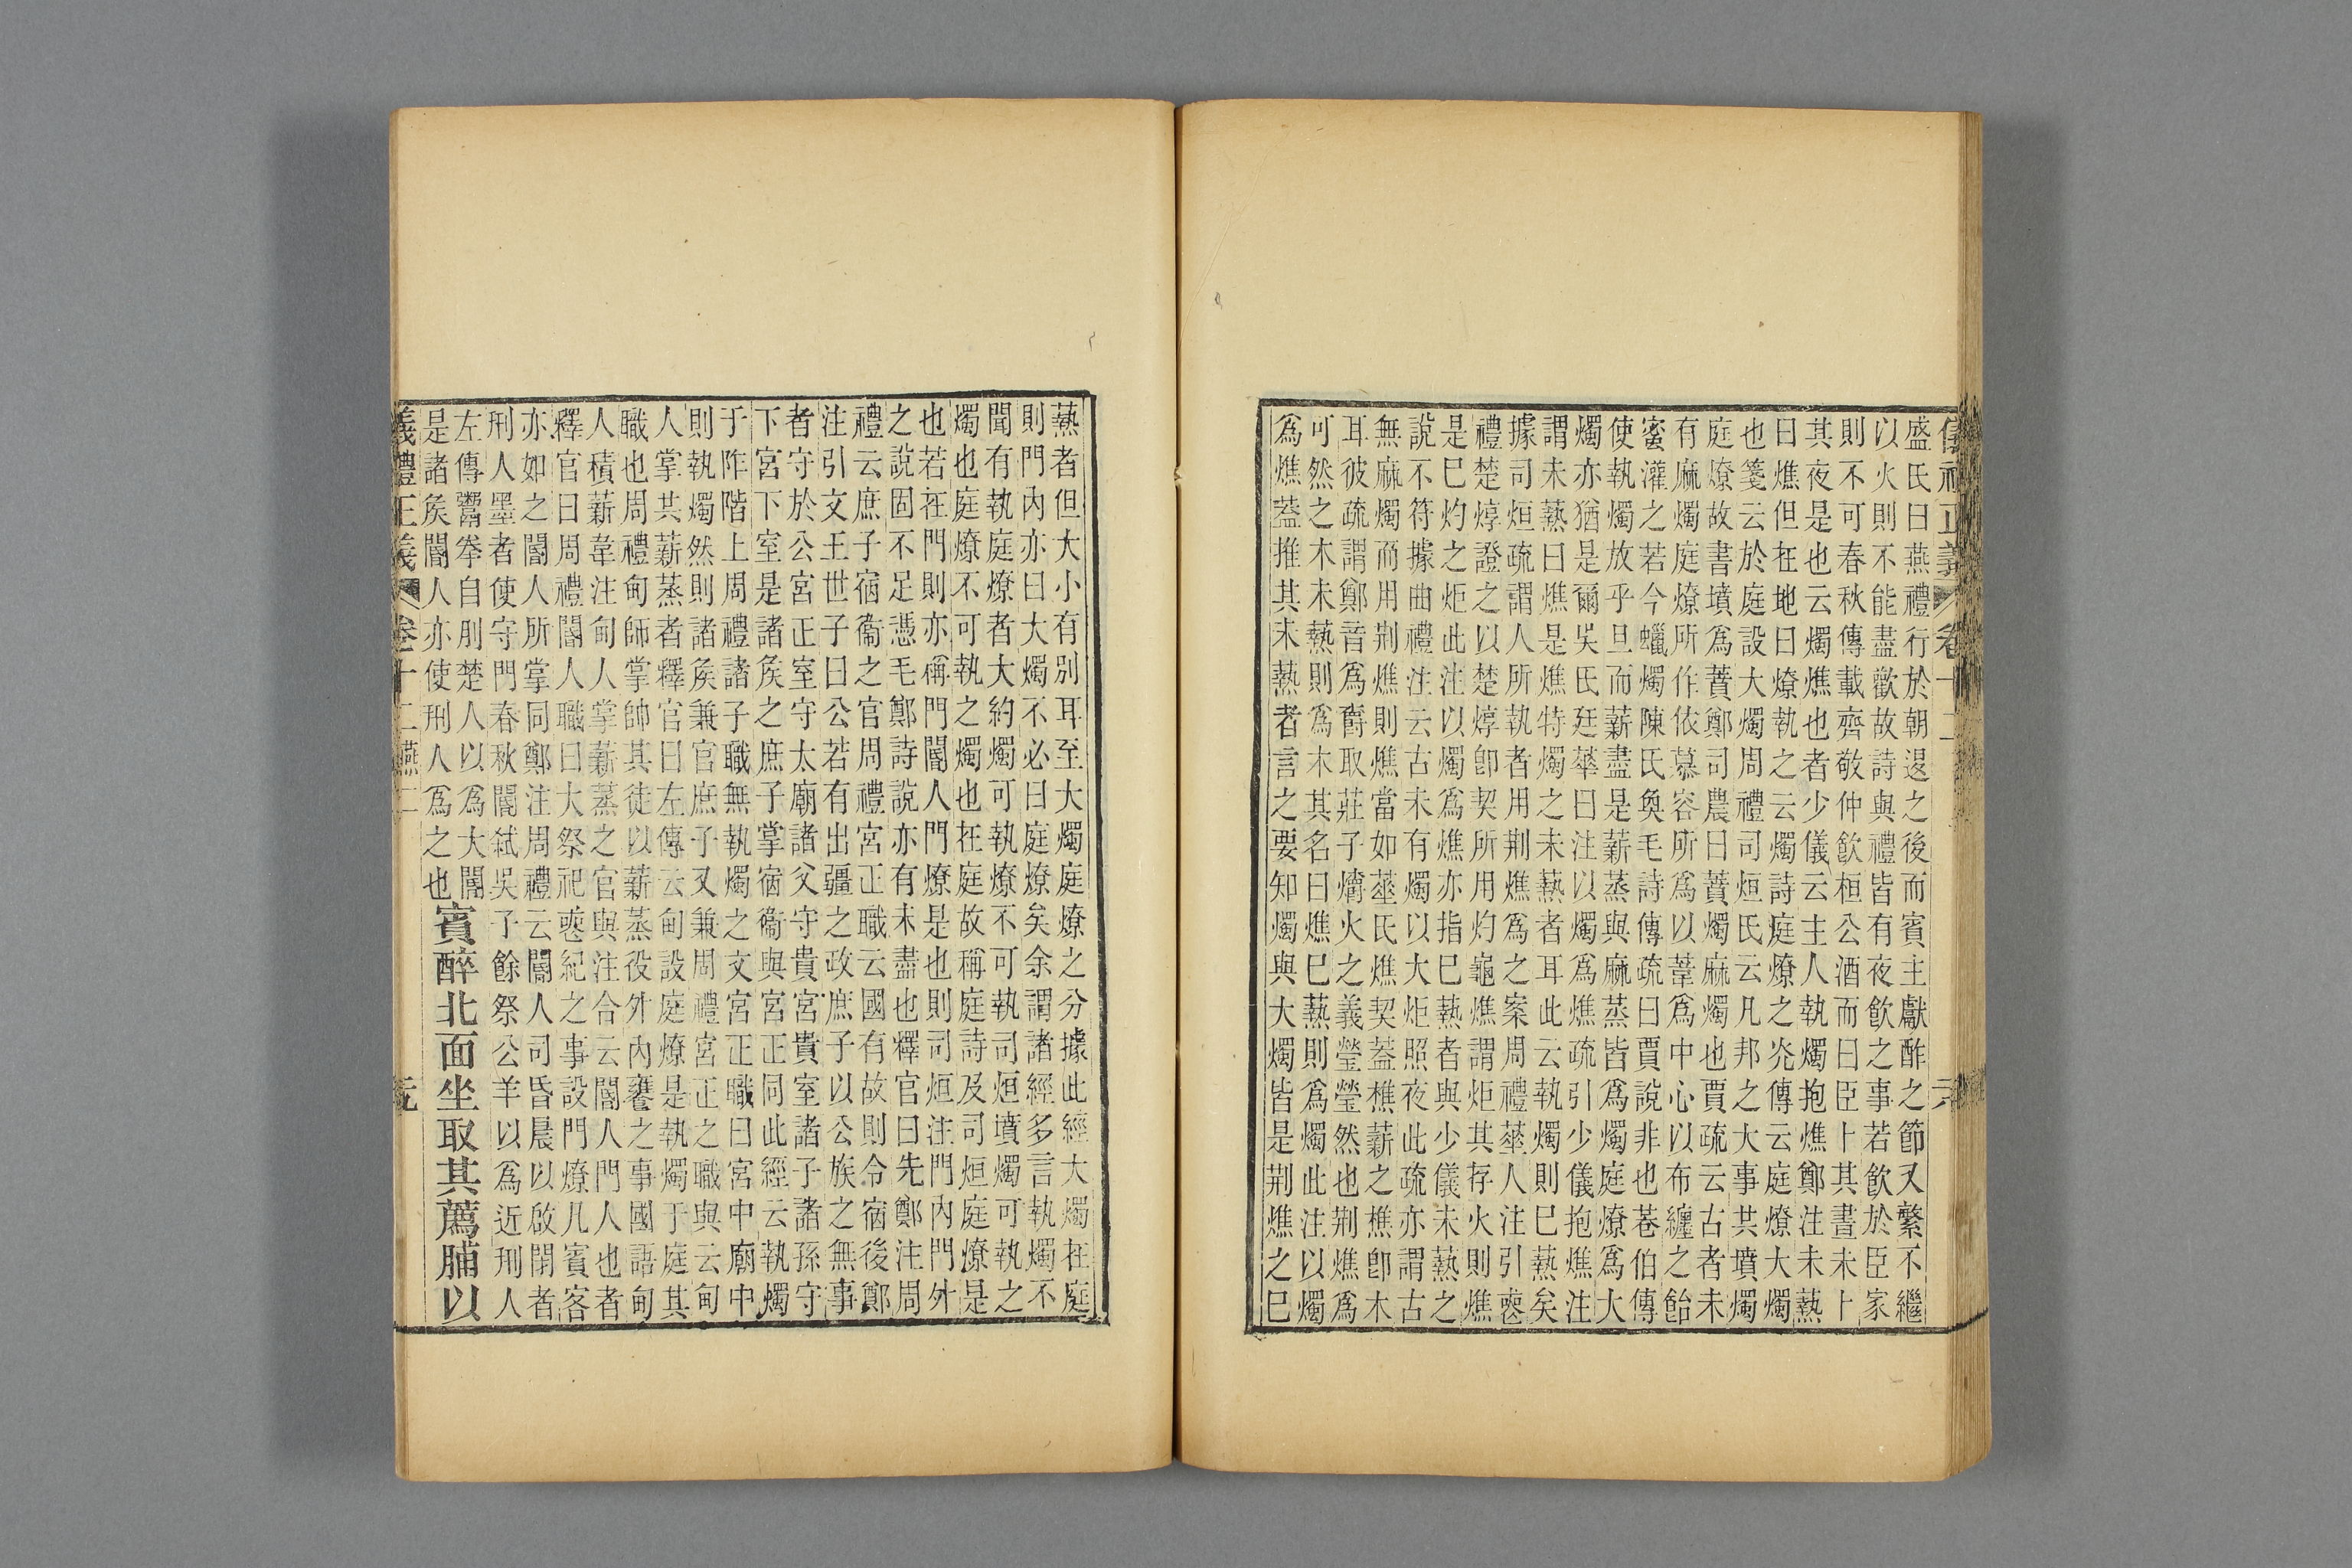 盛氏曰燕禮行於朝退之後而賓主獻酢之節又繁不繼
以火則不能盡歡故詩與禮皆有夜飲之事若飲於臣家
則不可春秋傳載齊敬仲飲桓公酒而曰臣卜其晝未卜
其夜是也云燭燋也者少儀云主人執燭抱燋鄭注未爇
曰燋但在地曰燎執之云燭詩庭燎之灮傳云庭燎大燭
也箋云於庭設大燭周禮司烜氏云凡邦之大事共墳燭
庭燎故書墳爲蕡鄭司農曰蕡燭麻燭也賈疏云古者未
有麻燭庭燎所作依慕容所爲以葦爲中心以布纏之飴
蜜灌之若今蠟燭陳氏奐毛詩傳疏曰賈說非也巷伯傳
使執燭放乎旦而薪盡是薪蒸與麻蒸皆爲燭庭燎爲大
燭亦猶是爾吳氏廷華曰注以燭爲燋疏引少儀抱燋注
謂未爇曰燋是燋特燭之未爇者耳此云執燭則巳爇矣
據司烜疏謂人所執者用荆燋爲之案周禮菙人注引喪
禮楚焞證之以楚焞卽契所用灼龜燋謂炬其存火則燋
是巳灼之炬此注以燭爲燋亦指巳爇者與少儀未爇之
說不符據曲禮注云古未有燭以大炬照夜此疏亦謂古
無麻燭而用荆燋則燋當如菙氏燋契蓋樵薪之樵卽木
耳彼疏謂鄭音爲爵取莊子爝火之義瑩瑩然也荆燋爲
可然之木未爇則爲木其名曰燋巳爇則爲燭此注以燭
爲燋葢推其未爇者言之要知燭與大燭皆是荆燋之巳
爇者但大小有別耳至大燭庭燎之分據此經大燭在庭
則門內亦曰大燭不必曰庭燎矣余謂諸經多言執燭不
聞有執庭燎者大約燭可執燎不可執司烜墳燭可執之
燭也庭燎不可執之燭也在庭故稱庭詩及司烜庭燎是
也若在門則亦稱門閽人門燎是也則司烜注門內門外
之說固不足憑毛鄭詩說亦有未盡也釋官曰先鄭注周
禮云庶子宿衞之官周禮宮正職云國有故則令宿後鄭
注引文王世子曰公若有出疆之政庶子以公族之無事
者守於公宮正室守太廟諸父守貴宮貴室諸子諸孫守
下宮下室是諸矦之庶子掌宿衞與宮正同此經云執燭
于阼階上周禮諸子職無執燭之文宮正職曰宮中廟中
則執燭然則諸矦兼官庶子又兼周禮宮正之職與云甸
人掌其薪蒸者釋官曰左傳云甸設庭燎是執燭于庭其
職也周禮甸師掌帥其徒以薪蒸役外內饔之事國語甸
人積薪韋注甸人掌薪蒸之官與注合云閽人門人也者
釋官曰周禮閽人職曰大祭祀喪紀之事設門燎凡賓客
亦如之閽人所掌同鄭注周禮云閽人司昏晨以啟閉者
刑人墨者使守門春秋閽弑吳子餘祭公羊以爲近刑人
左傳鬻拳自刖楚人以爲大閽
是諸矦閽人亦使刑人爲之也
賓醉北面坐取其薦脯以
儀禮正義 卷十二燕二